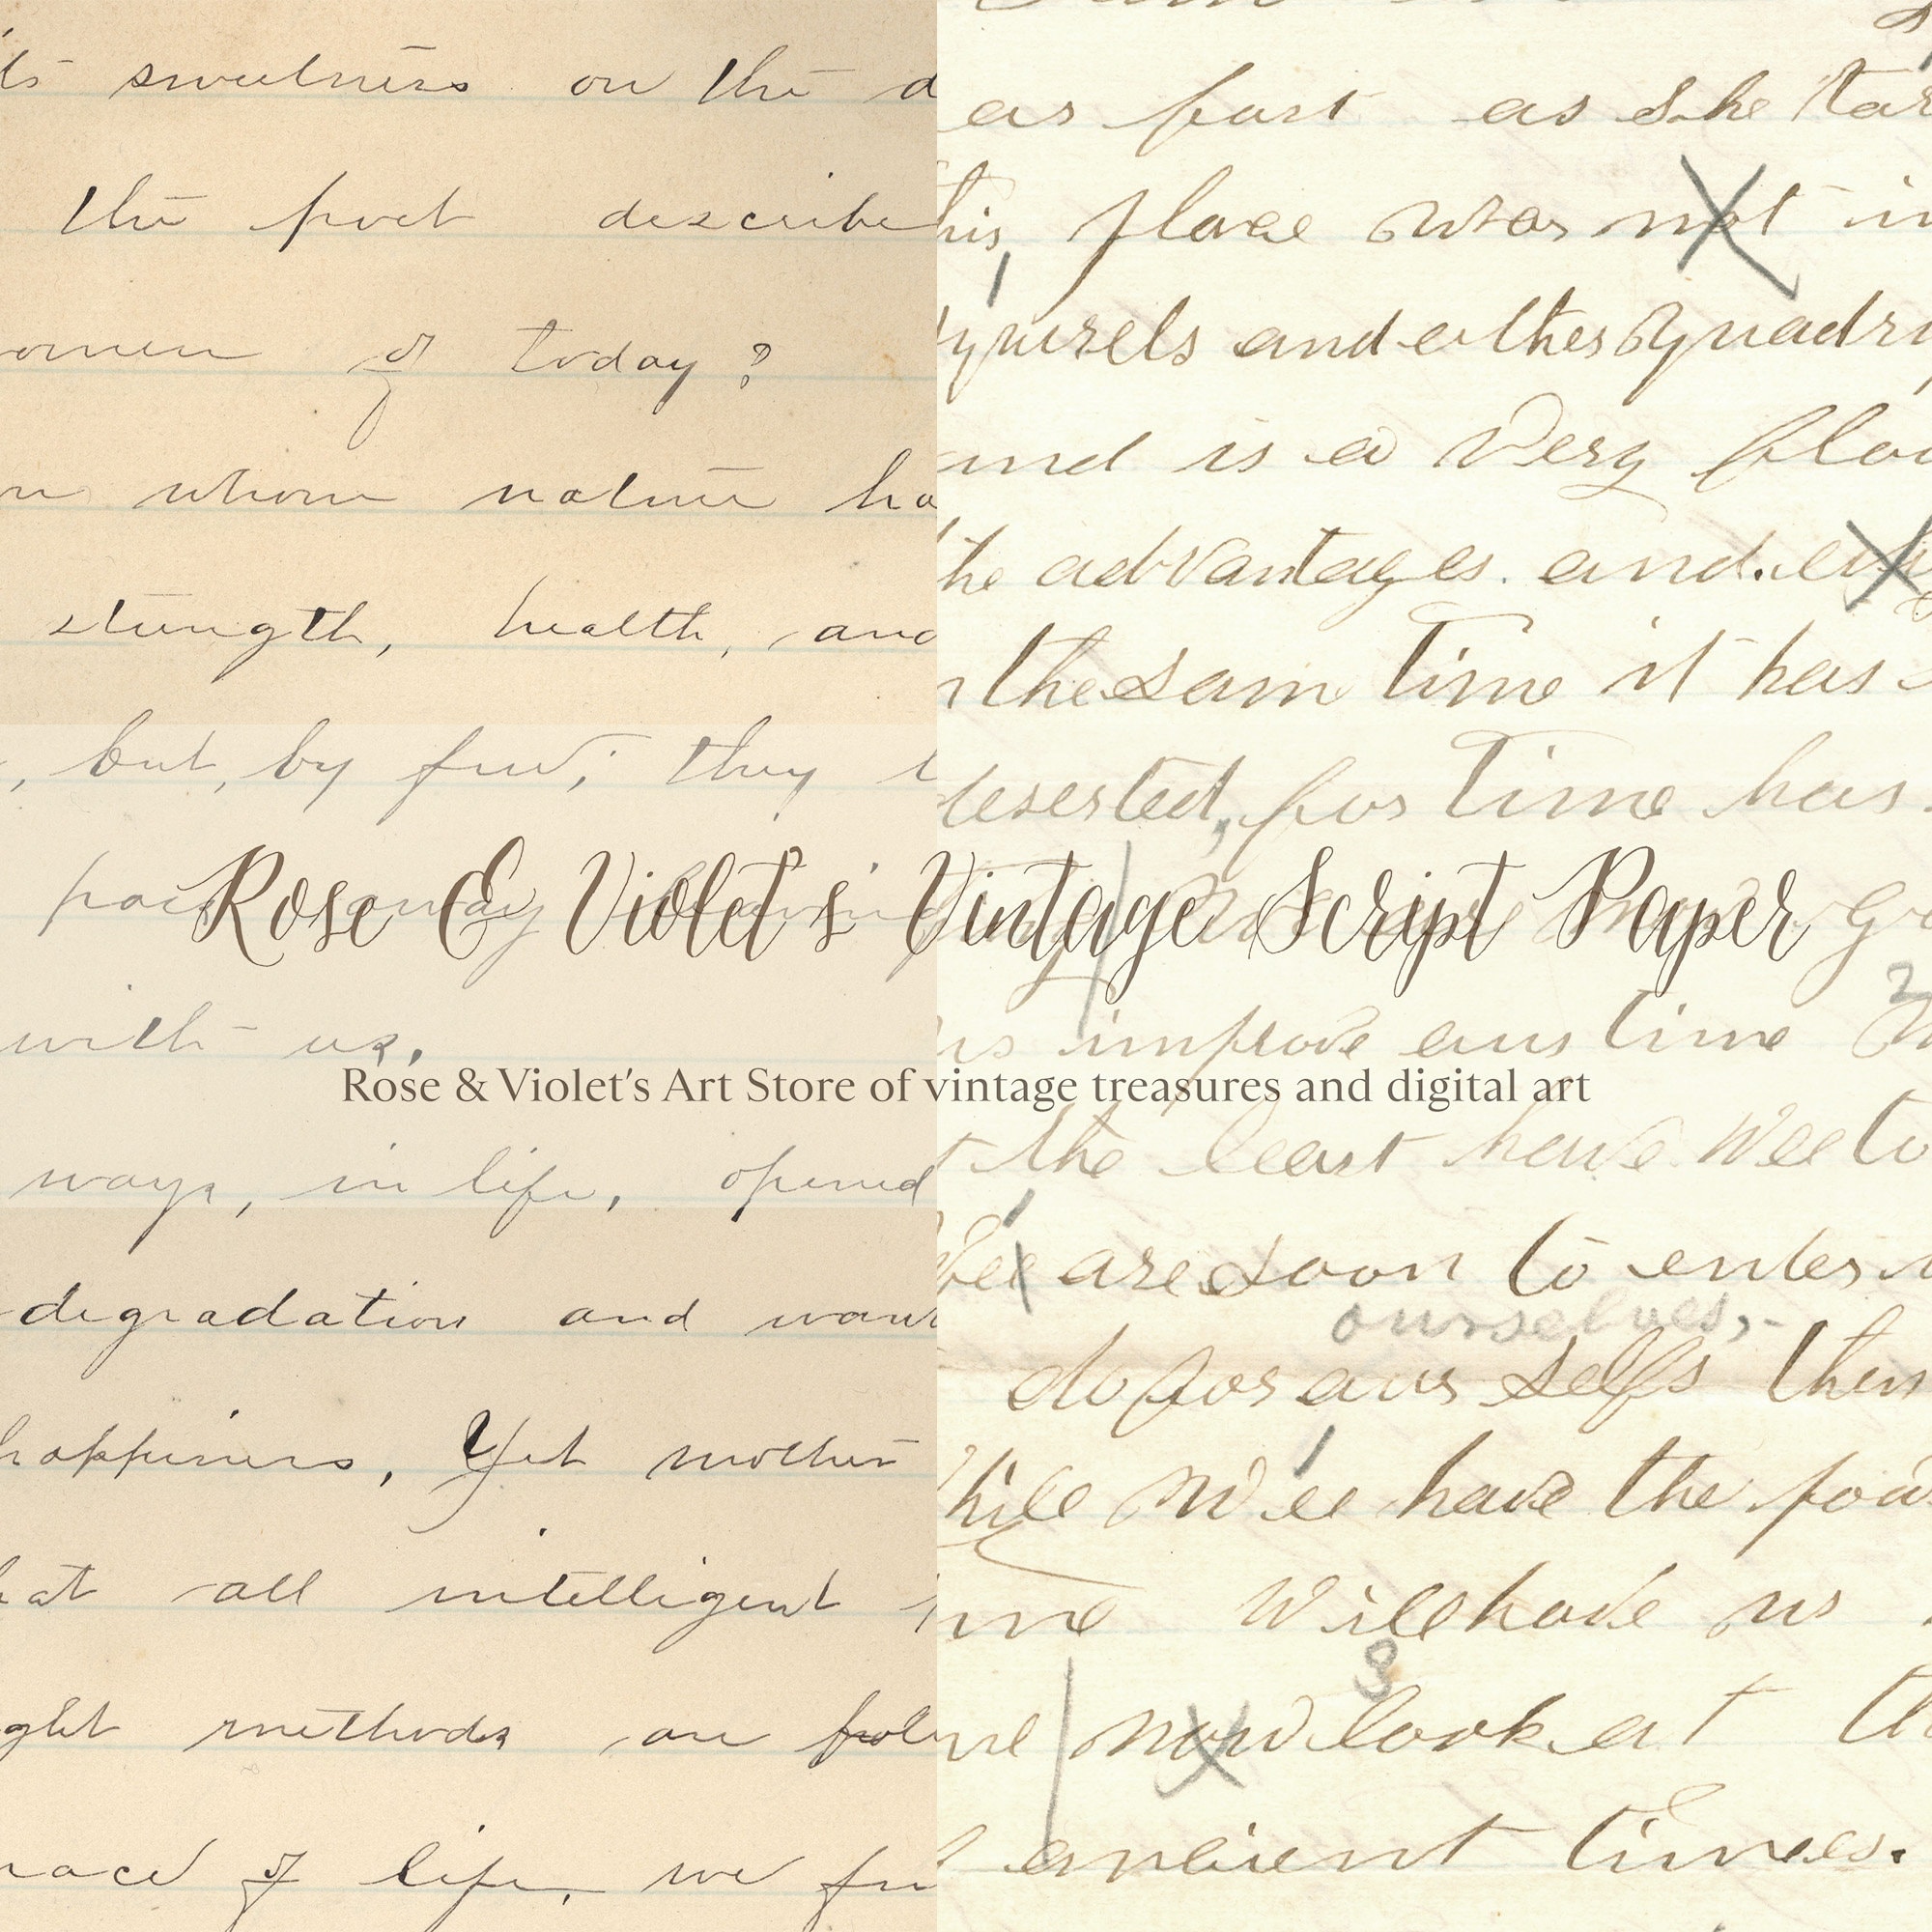 sweetness on the
the poet describe
omen of today?
whom nature ha
strength, health, and
, but, by few, they
Rose & Violet's Vintage Script Paper
with us.
Rose & Violet's Art Store of vintage treasures and digital art
ways, in life, opened
degradation and want
happiness, Yet mother
hat all intelligent
ght methods are
race of life, we
as fast as she
his, place was not in
squrels and other Quadru
and is a Very
the advantages. and.
the sam time it has
deserted, for time has
us improve our time
2
the least have Wee to
Wee are soon to enter
ourselves,
do for our selfs then
While Wee have the
Will have us
3
now look at
ancient times.